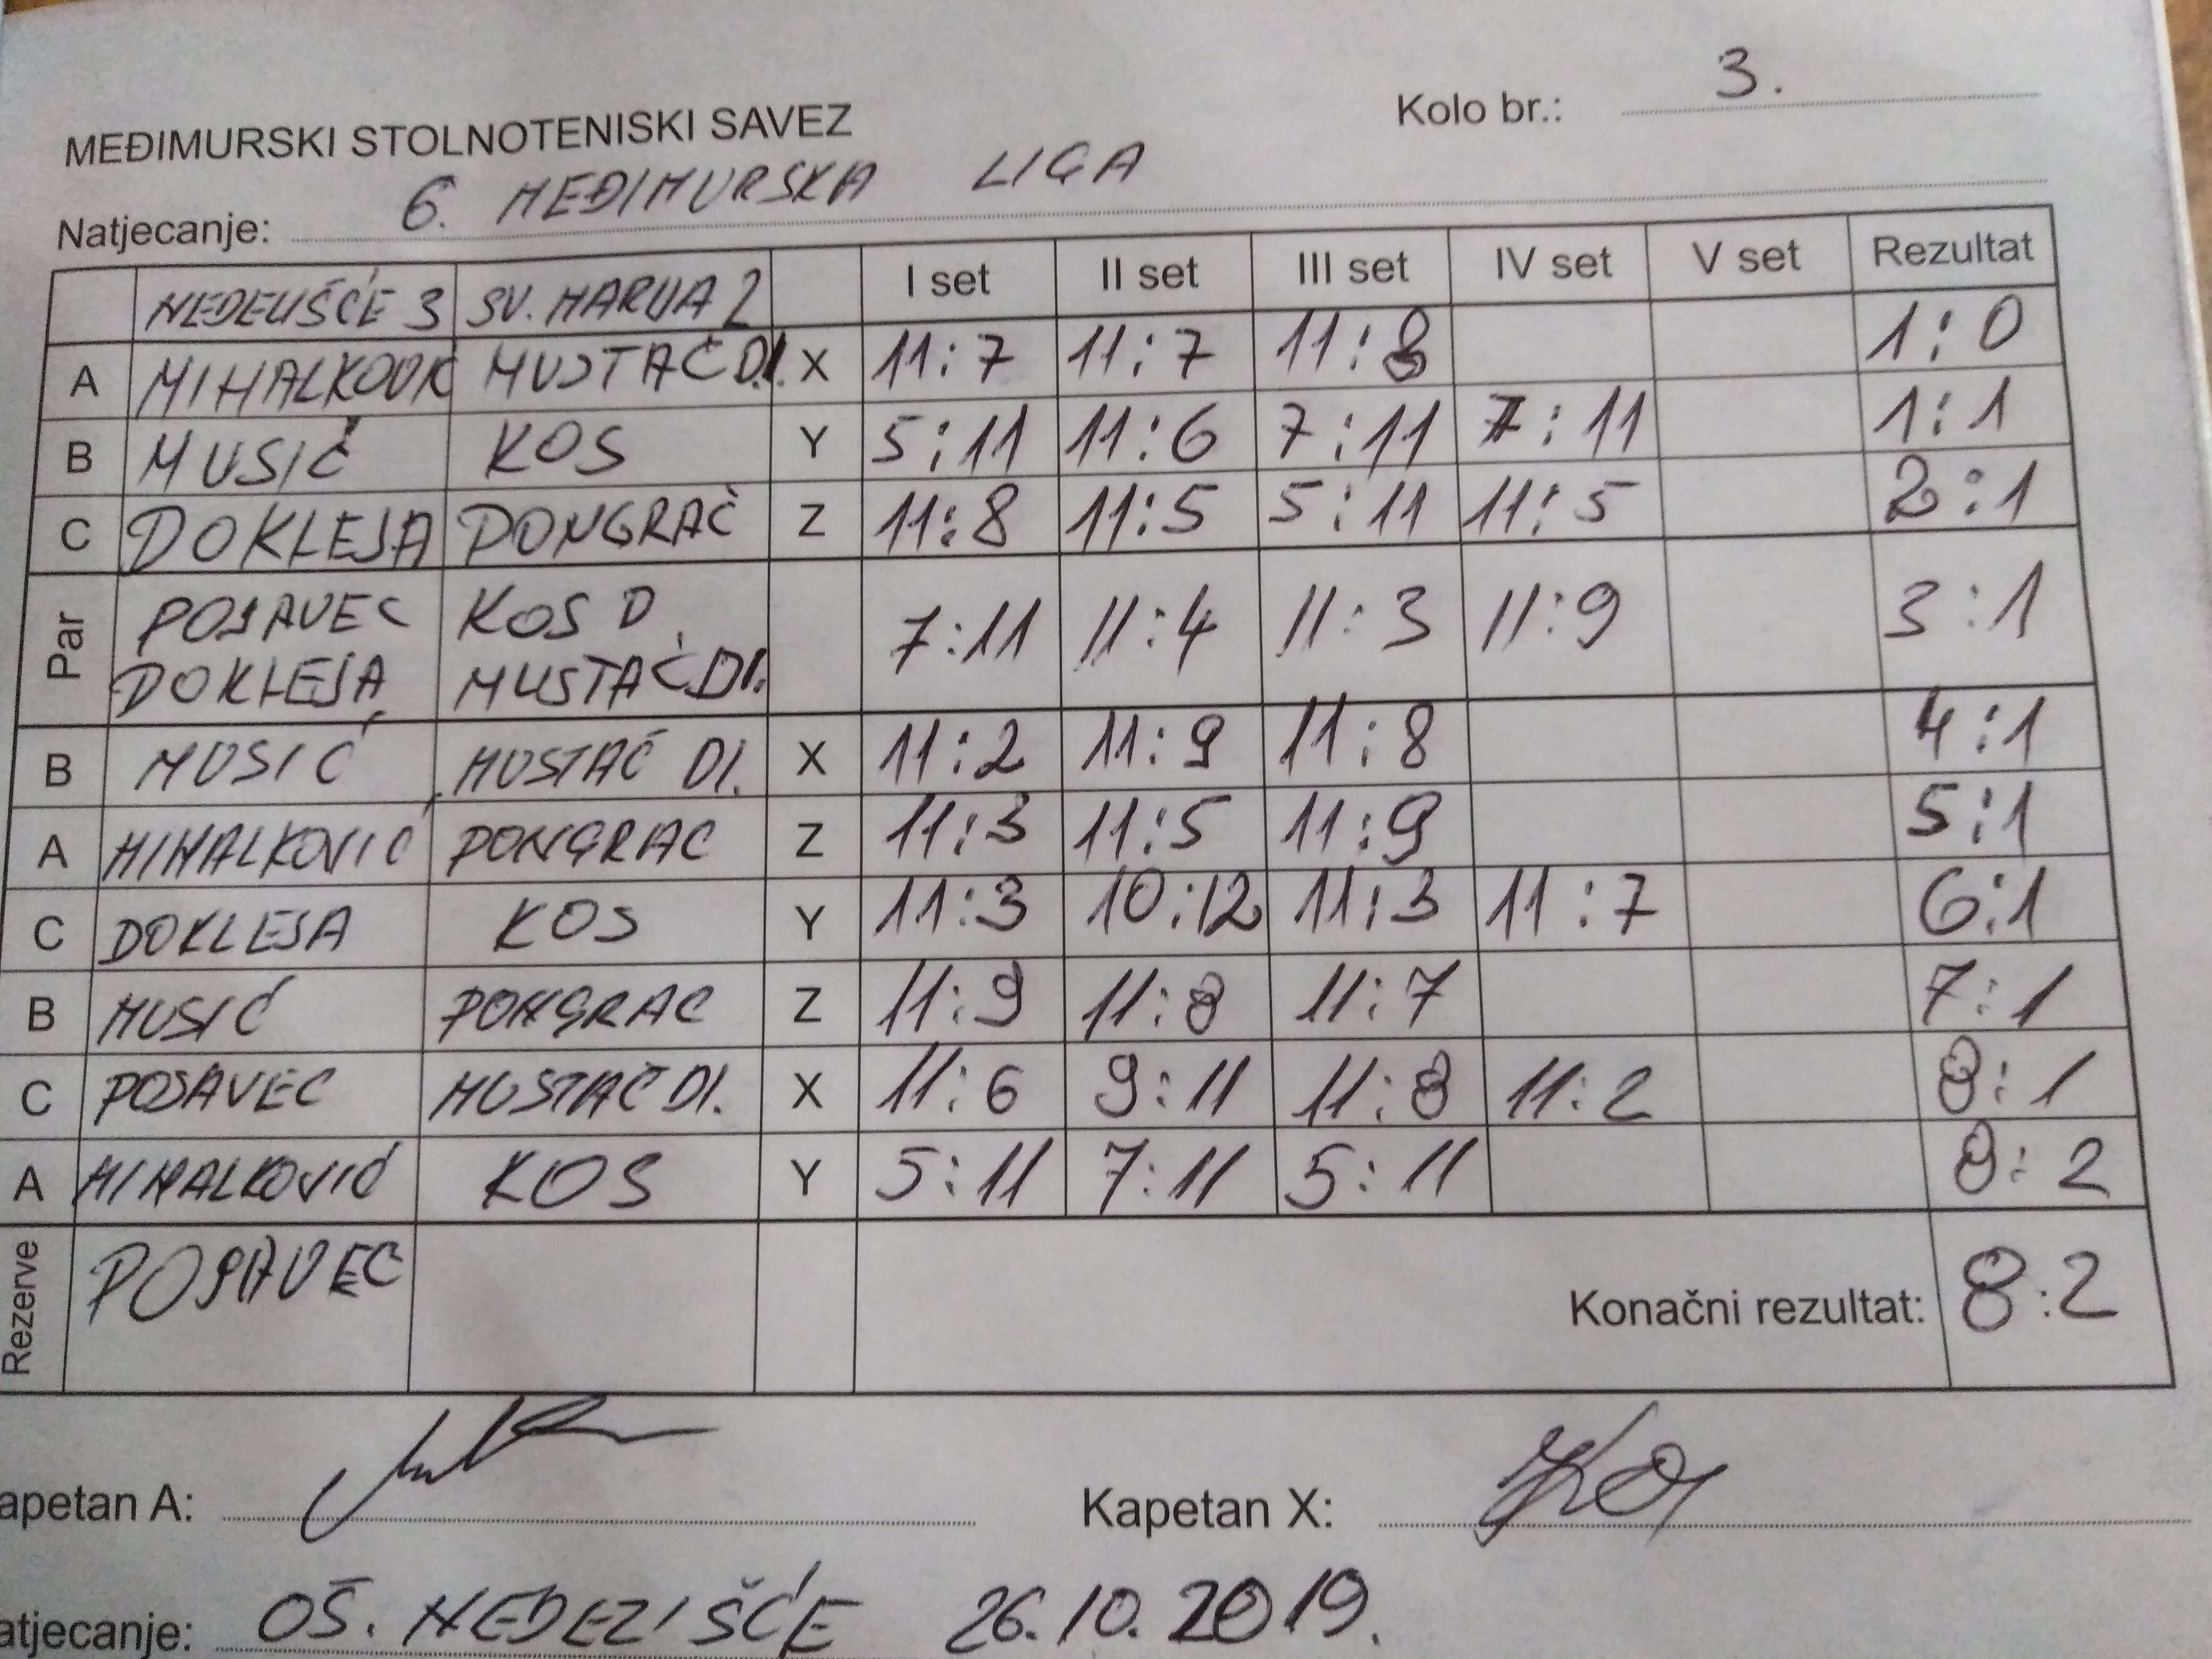 MEĐIMURSKI STOLNOTENISKI SAVEZ
Kolo br.: 3.
Natjecanje: 6. MEĐIMURSKA LIGA
NEDELIŠĆE 3 SV. MARIJA 2 I set II set III set IV set V set Rezultat
A MIHALKOVIĆ MUSTAČ D.I. X 11:7 11:7 11:8 1:0
B MUSIĆ KOS Y 5:11 11:6 7:11 7:11 1:1
C DOKLEJA PONGRAČ Z 11:8 11:5 5:11 11:5 2:1
Par POSAVEC KOS D. 7:11 11:4 11:3 11:9 3:1
DOKLEJA MUSTAČ DI.
B MUSIĆ MUSTAČ DI. X 11:2 11:9 11:8 4:1
A MIHALKOVIĆ PONGRAC Z 11:3 11:5 11:9 5:1
C DOKLEJA KOS Y 11:3 10:12 11:3 11:7 6:1
B MUSIĆ PONGRAC Z 11:9 11:8 11:7 7:1
C POSAVEC MUSTAČ DI. X 11:6 9:11 11:8 11:2 8:1
A MIHALKOVIĆ KOS Y 5:11 7:11 5:11 8:2
Rezerve POSAVEC Konačni rezultat: 8:2
apetan A: Kapetan X:
atjecanje: OŠ. NEDEZIŠĆE 26.10.2019.